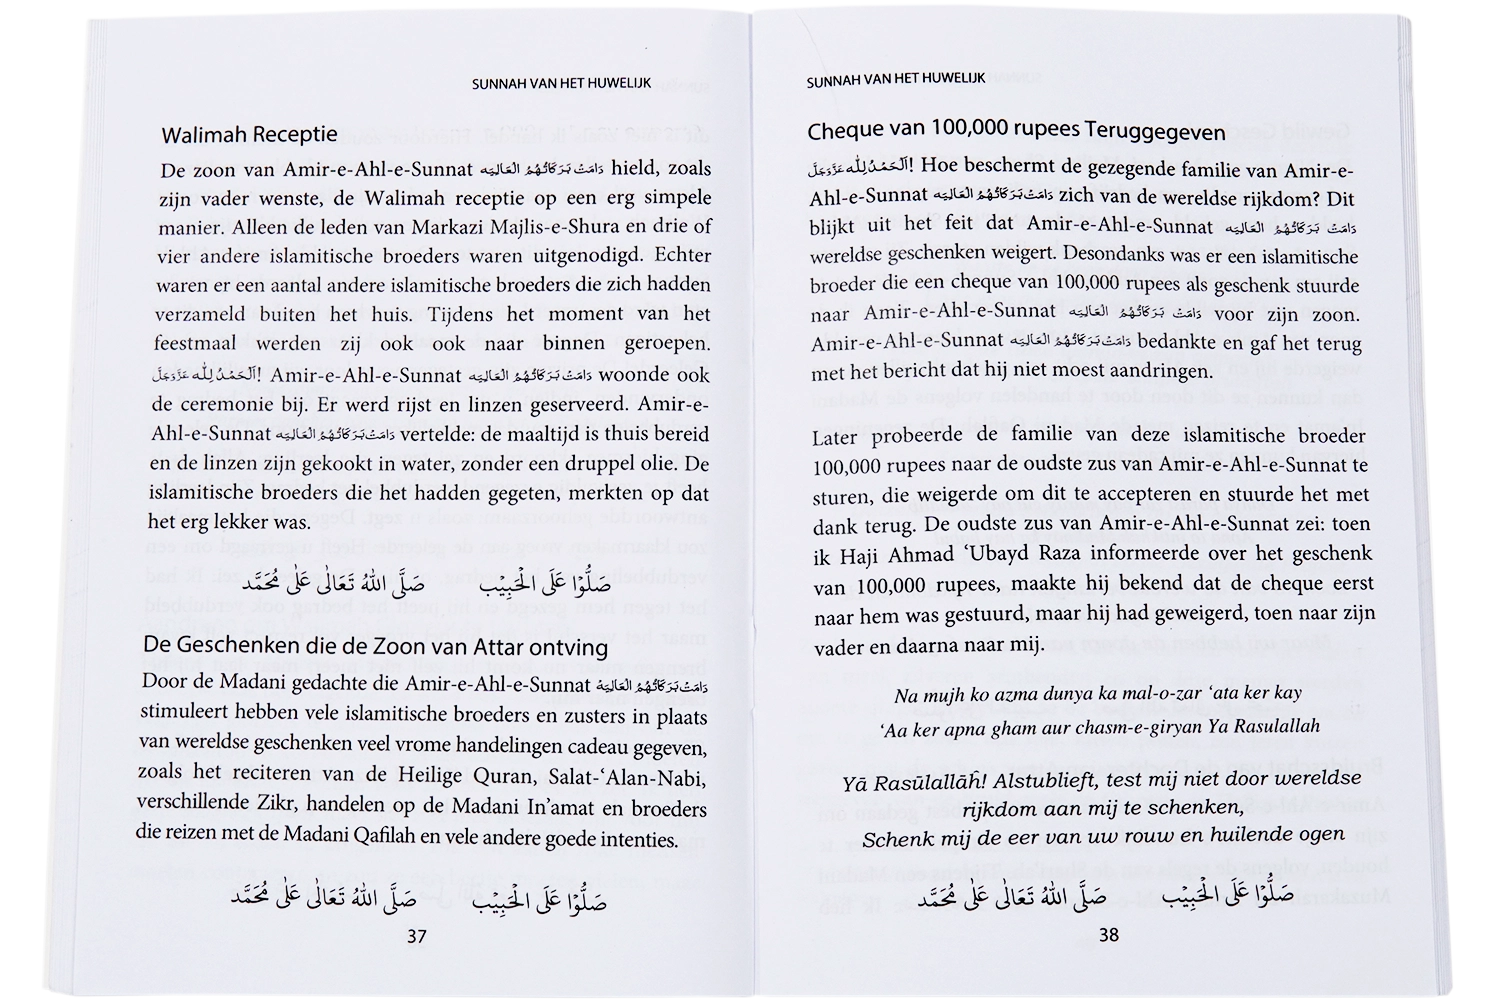 SUNNAH VAN HET HUWELIJK
Walimah Receptie
De zoon van Amir-e-Ahl-e-Sunnat دَامَتْ بَرَكَاتُهُمُ الْعَالِيَه hield, zoals
zijn vader wenste, de Walimah receptie op een erg simpele
manier. Alleen de leden van Markazi Majlis-e-Shura en drie of
vier andere islamitische broeders waren uitgenodigd. Echter
waren er een aantal andere islamitische broeders die zich hadden
verzameld buiten het huis. Tijdens het moment van het
feestmaal werden zij ook ook naar binnen geroepen.
اَلْحَمْدُ لِلّٰه عَزَّوَجَلَّ! Amir-e-Ahl-e-Sunnat دَامَتْ بَرَكَاتُهُمُ الْعَالِيَه woonde ook
de ceremonie bij. Er werd rijst en linzen geserveerd. Amir-e-
Ahl-e-Sunnat دَامَتْ بَرَكَاتُهُمُ الْعَالِيَه vertelde: de maaltijd is thuis bereid
en de linzen zijn gekookt in water, zonder een druppel olie. De
islamitische broeders die het hadden gegeten, merkten op dat
het erg lekker was.
صَلُّوْا عَلَى الْحَبِيْب صَلَّى اللهُ تَعَالٰى عَلٰى مُحَمَّد
De Geschenken die de Zoon van Attar ontving
Door de Madani gedachte die Amir-e-Ahl-e-Sunnat دَامَتْ بَرَكَاتُهُمُ الْعَالِيَه
stimuleert hebben vele islamitische broeders en zusters in plaats
van wereldse geschenken veel vrome handelingen cadeau gegeven,
zoals het reciteren van de Heilige Quran, Salat-‘Alan-Nabi,
verschillende Zikr, handelen op de Madani In’amat en broeders
die reizen met de Madani Qafilah en vele andere goede intenties.
صَلُّوْا عَلَى الْحَبِيْب صَلَّى اللهُ تَعَالٰى عَلٰى مُحَمَّد
37
SUNNAH VAN HET HUWELIJK
Cheque van 100,000 rupees Teruggegeven
اَلْحَمْدُ لِلّٰه عَزَّوَجَلَّ! Hoe beschermt de gezegende familie van Amir-e-
Ahl-e-Sunnat دَامَتْ بَرَكَاتُهُمُ الْعَالِيَه zich van de wereldse rijkdom? Dit
blijkt uit het feit dat Amir-e-Ahl-e-Sunnat دَامَتْ بَرَكَاتُهُمُ الْعَالِيَه
wereldse geschenken weigert. Desondanks was er een islamitische
broeder die een cheque van 100,000 rupees als geschenk stuurde
naar Amir-e-Ahl-e-Sunnat دَامَتْ بَرَكَاتُهُمُ الْعَالِيَه voor zijn zoon.
Amir-e-Ahl-e-Sunnat دَامَتْ بَرَكَاتُهُمُ الْعَالِيَه bedankte en gaf het terug
met het bericht dat hij niet moest aandringen.
Later probeerde de familie van deze islamitische broeder
100,000 rupees naar de oudste zus van Amir-e-Ahl-e-Sunnat te
sturen, die weigerde om dit te accepteren en stuurde het met
dank terug. De oudste zus van Amir-e-Ahl-e-Sunnat zei: toen
ik Haji Ahmad ‘Ubayd Raza informeerde over het geschenk
van 100,000 rupees, maakte hij bekend dat de cheque eerst
naar hem was gestuurd, maar hij had geweigerd, toen naar zijn
vader en daarna naar mij.
Na mujh ko azma dunya ka mal-o-zar ‘ata ker kay
‘Aa ker apna gham aur chasm-e-giryan Ya Rasulallah
Yā Rasūlallāĥ! Alstublieft, test mij niet door wereldse
rijkdom aan mij te schenken,
Schenk mij de eer van uw rouw en huilende ogen
صَلُّوْا عَلَى الْحَبِيْب صَلَّى اللهُ تَعَالٰى عَلٰى مُحَمَّد
38